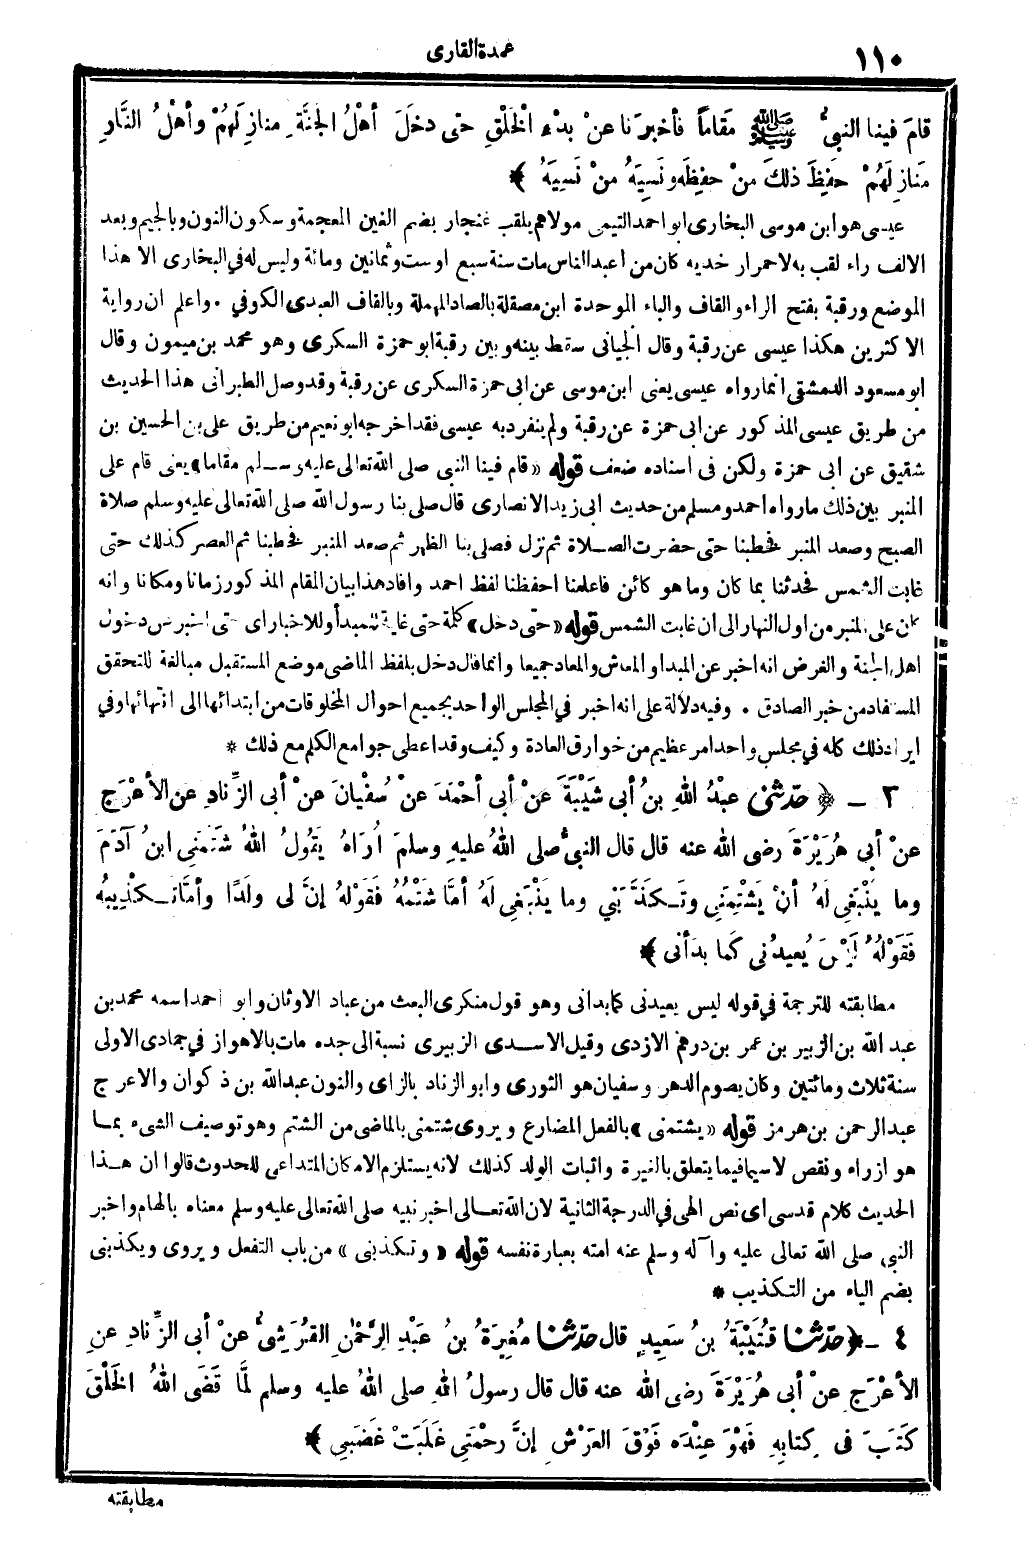 ١١٠
عمدة القارى
قامَ فينا النبىُّ ﷺ مَقَاماً فأخبرَنا عنْ بدْءِ الْخَلْقِ حتى دخَلَ أهْلُ الجَنَّةِ منازِلَهُمْ وأهْلُ النَّارِ
مَنازِلَهُمْ حَفِظَ ذلكَ منْ حفِظَه ونَسِيَهُ منْ نَسِيَهُ ﴾
عيسى هو ابن موسى البخارى ابو احمد التيمى مولاهم يلقب غنجار بضم الغين المعجمة وسكون النون وبالجيم وبعد
الالف راء لقب به لاحمرار خديه كان من اعبد الناس مات سنة سبع او ست وثمانين ومائة وليس له في البخارى الا هذا
الموضع ورقبة بفتح الراء والقاف والباء الموحدة ابن مصقلة بالصاد المهملة وبالقاف العبدى الكوفي . واعلم ان رواية
الاكثرين هكذا عيسى عن رقبة وقال الجيانى سقط بينه وبين رقبة ابو حمزة السكرى وهو محمد بن ميمون وقال
ابو مسعود الدمشقى انما رواه عيسى يعنى ابن موسى عن ابى حمزة السكرى عن رقبة وقد وصل الطبرانى هذا الحديث
من طريق عيسى المذكور عن ابى حمزة عن رقبة ولم ينفرد به عيسى فقد اخرجه ابو نعيم من طريق على بن الحسين بن
شقيق عن ابى حمزة ولكن فى اسناده ضعف قوله «قام فينا النبى صلى الله تعالى عليه وسلم مقاما» يعنى قام على
المنبر بين ذلك ما رواه احمد ومسلم من حديث ابى زيد الانصارى قال صلى بنا رسول الله صلى الله تعالى عليه وسلم صلاة
الصبح وصعد المنبر فخطبنا حتى حضرت الصلاة ثم نزل فصلى بنا الظهر ثم صعد المنبر فخطبنا ثم العصر كذلك حتى
غابت الشمس فحدثنا بما كان وما هو كائن فاعلمنا احفظنا لفظ احمد وافاد هذا بيان المقام المذكور زمانا ومكانا وانه
كان على المنبر من اول النهار الى ان غابت الشمس قوله «حتى دخل» كلمة حتى غاية للمبدأ وللاخبار اى حتى اخبر عن دخول
اهل الجنة والغرض انه اخبر عن المبدا والمعاش والمعاد جميعا وانما قال دخل بلفظ الماضى موضع المستقبل مبالغة للتحقق
المستفاد من خبر الصادق . وفيه دلالة على انه اخبر في المجلس الواحد بجميع احوال المخلوقات من ابتدائها الى انتهائها وفي
ايراد ذلك كله في مجلس واحد امر عظيم من خوارق العادة وكيف وقد اعطى جوامع الكلم مع ذلك *
٣ ـ ﴿ حدّثنى عبْدُ اللهِ بنُ أبى شَيْبَةَ عَنْ أبى أحْمَدَ عَنْ سُفْيانَ عَنْ أبى الزِّنادِ عنِ الأعْرَجِ
عنْ أبى هُرَيْرَةَ رضى الله عنه قال قال النبىُّ صلى اللهُ عليه وسلمَ أُرَاهُ يَقُولُ اللهُ شَتَمَنِى ابنُ آدَمَ
وما يَنْبَغِى لَهُ أنْ يَشْتِمَنِى وتَكَذَّبَنِي وما يَنْبَغِى لَهُ أمَّا شَتْمُهُ فَقَوْلهُ إنَّ لى ولَدًا وأمَّا تَكْذِيبُهُ
فَقَوْلُهُ لَيْسَ يُعيدُنِي كَما بدَأنى ﴾
مطابقته للترجمة في قوله ليس يعيدنى كما بدانى وهو قول منكرى البعث من عباد الاوثان وابو احمد اسمه محمد بن
عبد الله بن الزبير بن عمر بن درهم الازدى وقيل الاسدى الزبيرى نسبة الى جده مات بالاهواز في جمادى الاولى
سنة ثلاث ومائتين وكان يصوم الدهر وسفيان هو الثورى وابو الزناد بالزاى والنون عبد الله بن ذكوان والاعرج
عبد الرحمن بن هرمز قوله «يشتمنى» بالفعل المضارع ويروى شتمنى بالماضى من الشتم وهو توصيف الشىء بما
هو ازراء ونقص لا سيما فيما يتعلق بالغيرة واثبات الولد كذلك لانه يستلزم الامكان المتداعى للحدوث قالوا ان هذا
الحديث كلام قدسى اى نص الهى في الدرجة الثانية لان الله تعالى اخبر نبيه صلى الله تعالى عليه وسلم معناه بالهام واخبر
النبى صلى الله تعالى عليه وآله وسلم عنه امته بعبارة نفسه قوله «وتكذبنى» من باب التفعل ويروى ويكذبنى
بضم الياء من التكذيب *
٤ ـ ﴿ حدّثنا قُتَيْبَةُ بنُ سَعِيدٍ قال حدّثنا مُغِيرَةُ بنُ عَبْدِ الرَّحْمٰنِ القُرَشِىُّ عنْ أبى الزِّنادِ عنِ
الأعْرَجِ عنْ أبى هُرَيْرَةَ رضى اللهُ عنه قال قال رسولُ اللهِ صلى اللهُ عليه وسلم لمَّا قَضَى اللهُ الْخَلْقَ
كَتَبَ فى كِتابِهِ فَهْوَ عِنْدَه فَوْقَ العَرْشِ إنَّ رحْمَتِي غَلَبَتْ غَضَبِى ﴾
مطابقته